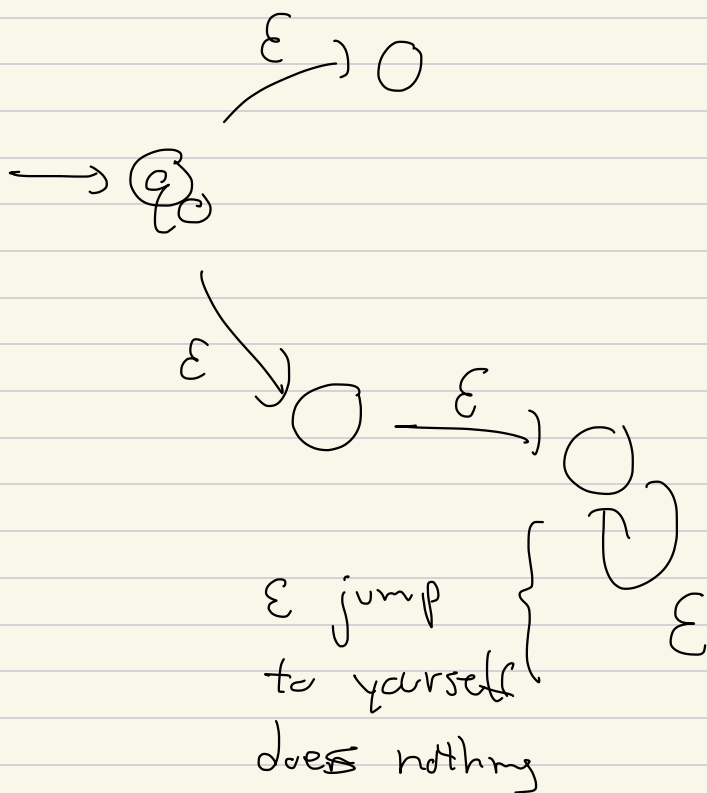 ε
q0
ε
ε
ε
ε jump
to yourself
does nothing